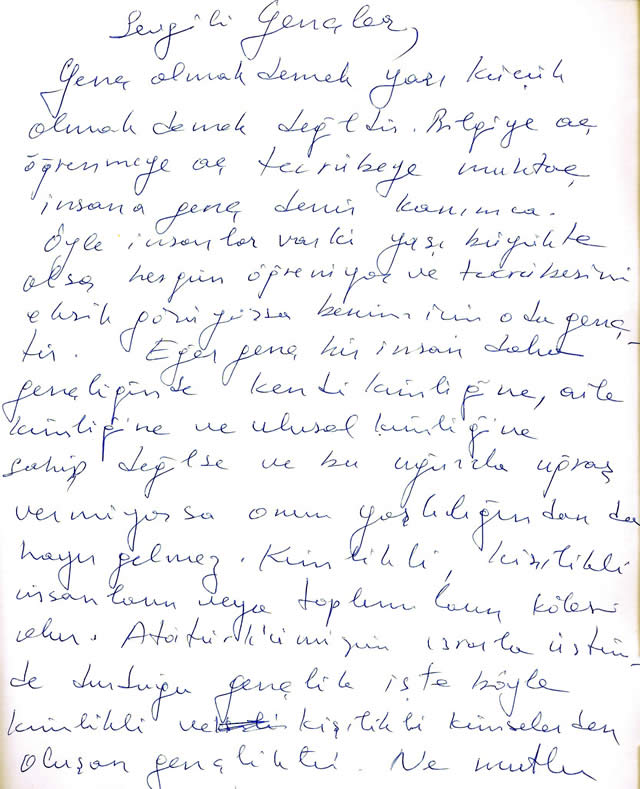 Sevgili Gençler,
Genç olmak demek yaşı küçük
olmak demek değildir. Bilgiye aç
öğrenmeye aç tecrübeye muhtaç
insana genç denir kanımca.
Öyle insanlar varki yaşı büyükte
olsa hergün öğreniyor ve tecrübesini
eksik görüyorsa benim için oda genç-
tir. Eğer genç bir insan daha
gençliğinde kendi kimliğine, aile
kimliğine ve ulusal kimliğine
sahip değilse ve bu uğurda uğraş
vermiyorsa onun yaşlılığından da
hayır gelmez. Kimlikli, kişilikli
insanların veya toplumların kölesi
olur. Atatürk'ümüzün ısrarla üstün-
de durduğu gençlik işte böyle
kimlikli ve kişilikli kimselerden
oluşan gençliktir. Ne mutlu